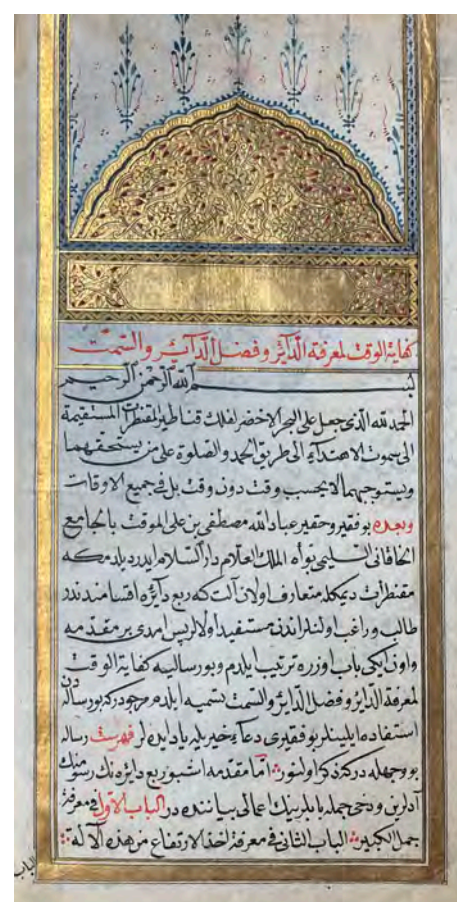 كفاية الوقت لمعرفة الدآئر وفضل الدآئر والسمت
بسم الله الرحمن الرحيم
الحمد لله الذى جعل على البحر الاخضر لفلك قناطير المقنطرات المستقيمة
الى سموت الاهتدآء الى طريق الحمد والصلوة على من يستحقهما
ويستوجبهما لا بحسب وقت دون وقت بل فى جميع الاوقات
وبعده بو فقير وحقير عباد الله مصطفى بن على الموقت بالجامع
الخاقانى السليمى بوأه الملك العلام دار السلام ايدر ديلدمكه
مقنطرات ديمكله متعارف اولان آلت كه ربع دآئره اقسامنددندر
طالب وراغب اولنلر اندن مستفيد اولالر پس امدى بر مقدمه
واون ايكى باب اوزره ترتيب ايلدم وبو رساليه كفاية الوقت
لمعرفة الدآئر وفضل الدآئر والسمت تسميه ايلدم مرجودر كه بو رساله دن
استفاده ايليينلر بو فقيرى دعاء خير يله ياد ايده لر فهرست رساله
بو وجهله در كه ذكر اولنور اما مقدمه اشبو ربع دايره نك رسومنك
آدلرين ودخى جمله بابلرينك اعمالى بياننده در الباب الاول فى معرفة
جمل الكبير الباب الثانى فى معرفة اخذ الارتفاع من هذه الآلة
الباب